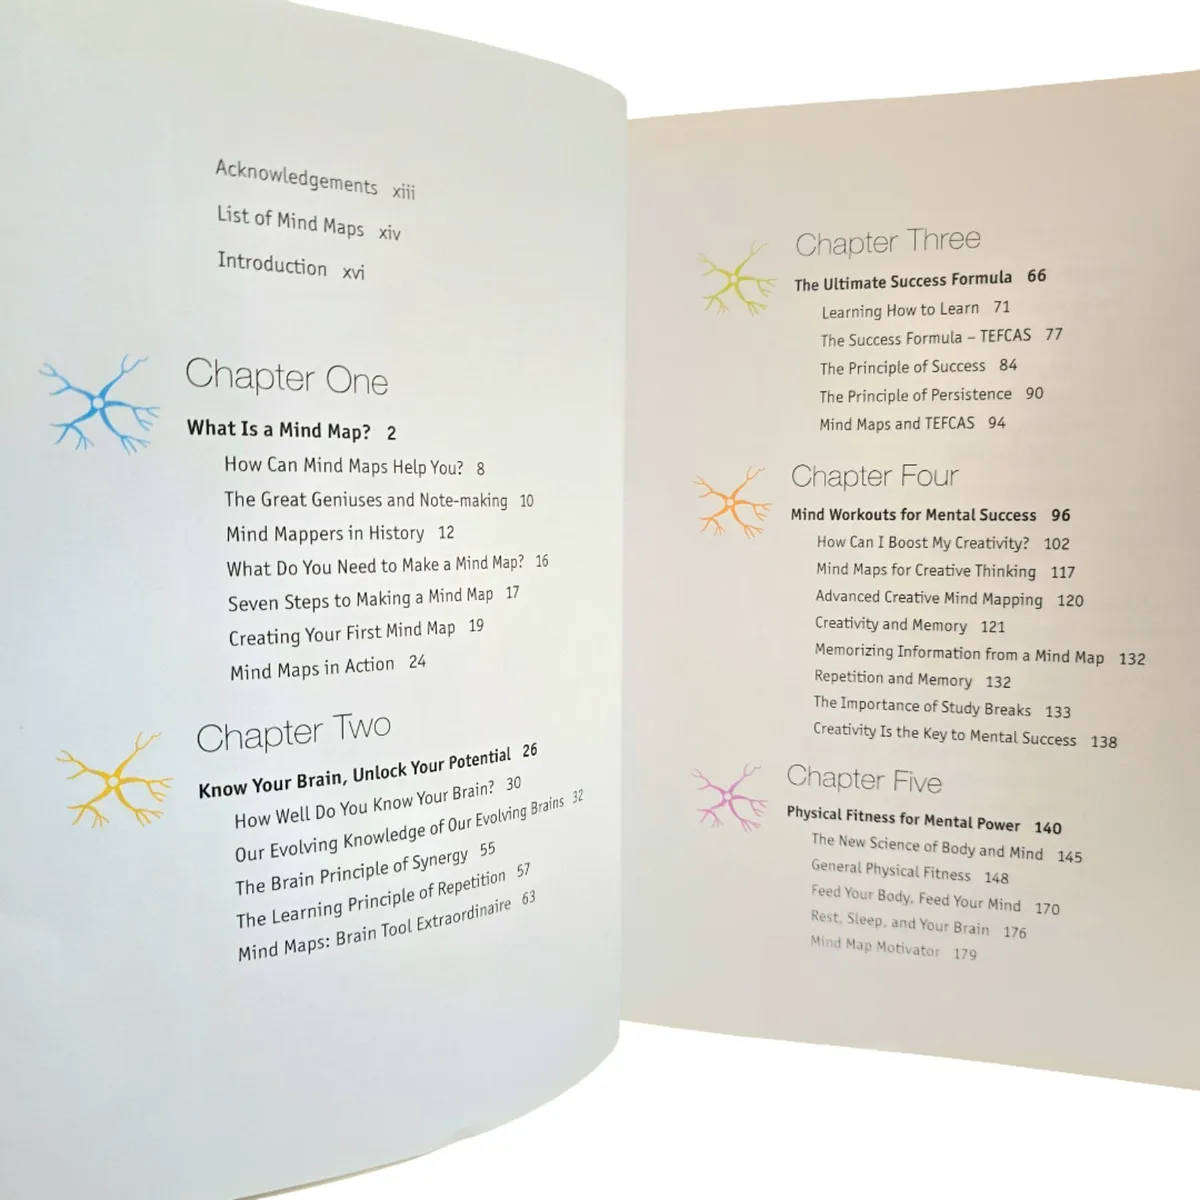 Acknowledgements xiii
List of Mind Maps xiv
Introduction xvi
Chapter One
What Is a Mind Map? 2
How Can Mind Maps Help You? 8
The Great Geniuses and Note-making 10
Mind Mappers in History 12
What Do You Need to Make a Mind Map? 16
Seven Steps to Making a Mind Map 17
Creating Your First Mind Map 19
Mind Maps in Action 24
Chapter Two
Know Your Brain, Unlock Your Potential 26
How Well Do You Know Your Brain? 30
Our Evolving Knowledge of Our Evolving Brains 32
The Brain Principle of Synergy 55
The Learning Principle of Repetition 57
Mind Maps: Brain Tool Extraordinaire 63
Chapter Three
The Ultimate Success Formula 66
Learning How to Learn 71
The Success Formula – TEFCAS 77
The Principle of Success 84
The Principle of Persistence 90
Mind Maps and TEFCAS 94
Chapter Four
Mind Workouts for Mental Success 96
How Can I Boost My Creativity? 102
Mind Maps for Creative Thinking 117
Advanced Creative Mind Mapping 120
Creativity and Memory 121
Memorizing Information from a Mind Map 132
Repetition and Memory 132
The Importance of Study Breaks 133
Creativity Is the Key to Mental Success 138
Chapter Five
Physical Fitness for Mental Power 140
The New Science of Body and Mind 145
General Physical Fitness 148
Feed Your Body, Feed Your Mind 170
Rest, Sleep, and Your Brain 176
Mind Map Motivator 179